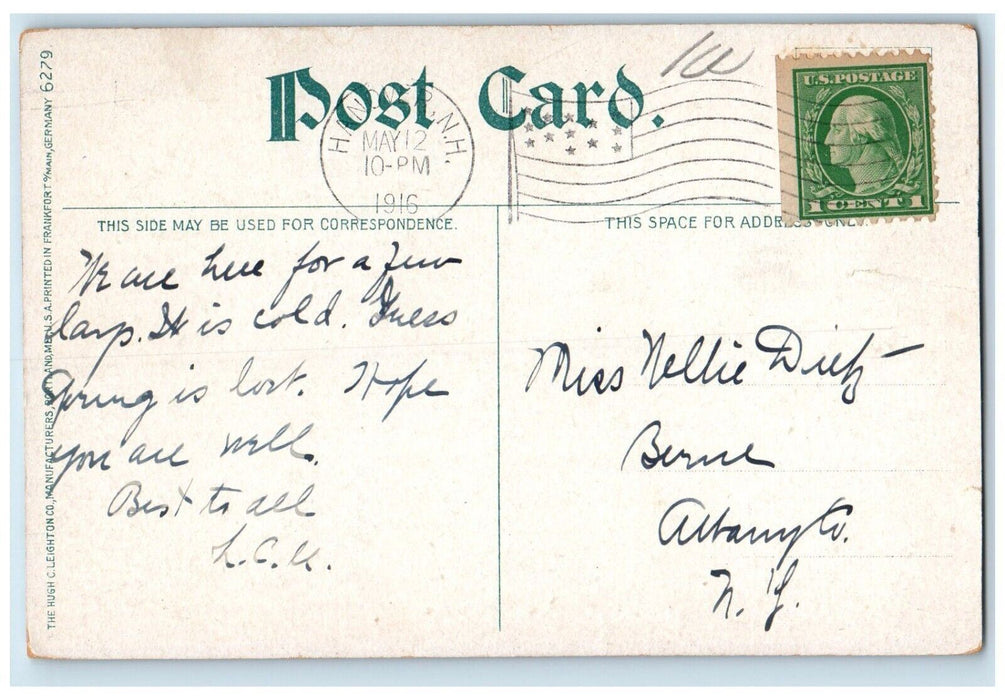 Post Card.
HANOVER, N.H.
MAY 12
10-PM
1916
U.S. POSTAGE
1 CENT 1
THIS SIDE MAY BE USED FOR CORRESPONDENCE.
THIS SPACE FOR ADDRESS ONLY.
We are here for a few
days. It is cold. Guess
Spring is lost. Hope
you are well.
Best to all
L.C.H.
Miss Nellie Dietz
Berne
Albany Co.
N.Y.
THE HUGH C. LEIGHTON CO., MANUFACTURERS, PORTLAND, ME., U.S.A. PRINTED IN FRANKFORT o/MAIN, GERMANY 6279